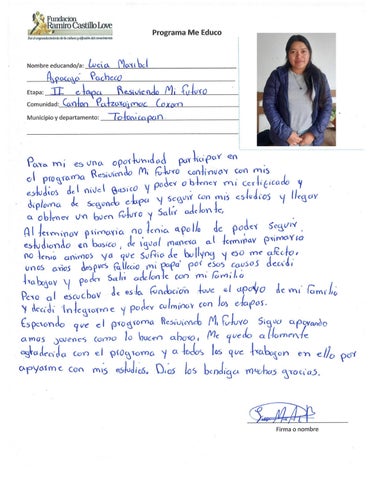 Fundación
Ramiro Castillo Love
Programa Me Educo
Nombre educando/a: Lucia Maribel
Ajpacajá Pacheco
Etapa: II etapa Resiviendo Mi Futuro
Comunidad: Canton Patzarajmac Coxom
Municipio y departamento: Totonicapan
Para mi es una oportunidad participar en
el programa Resiviendo Mi Futuro continuar con mis
estudios del nivel Basico y poder obtener mi certificado y
diploma de segundo etapa y seguir con mis estudios y llegar
a obtener un buen futuro y Salir adelante,
Al terminar primaria no tenia apollo de poder seguir
estudiendo en basico, de igual manera al terminar primaria
no tenia animos ya que sufrio de bullyng y eso me afecto,
unos años despues fallecio mi papá por esos causas decidi
trabajar y poder Salir adelante con mi familia
Pero al escuchar de esta fundación tuve el apoyo de mi familia
y decidi Integrarme y poder culminar con los etapas.
Esperando que el programa Resiviendo Mi Futuro Sigua apoyando
amas jovenes como lo hacen ahora. Me quedo altamente
agradecida con el programa y a todos los que trabajan en ello por
apyarme con mis estudios. Dios los bendiga muchas gracias.
Firma o nombre